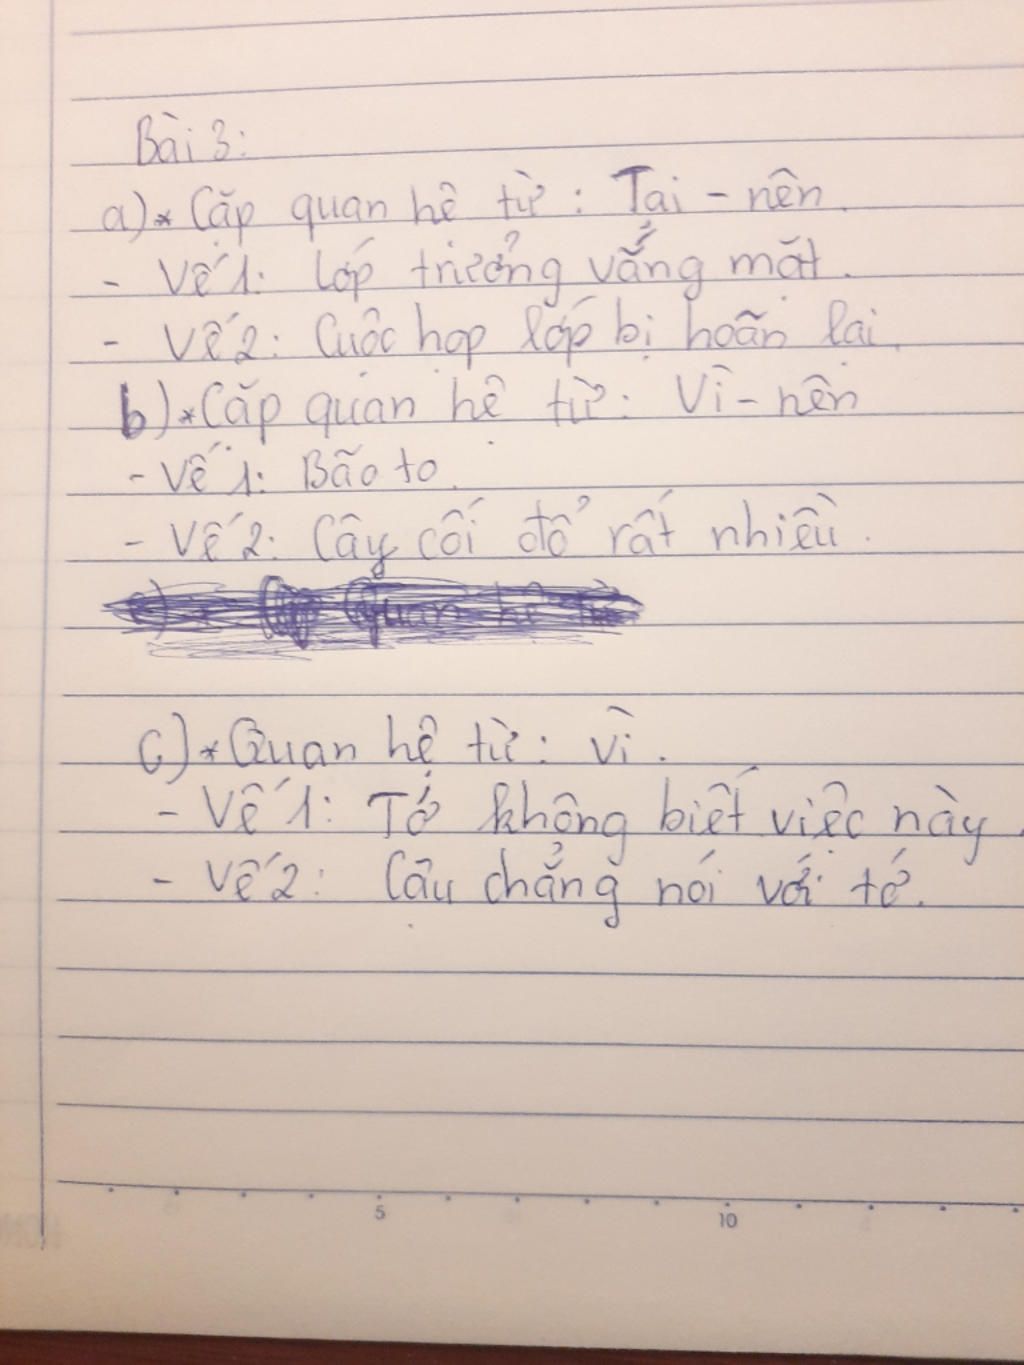 Bài 3:
a)* Cặp quan hệ từ : Tại - nên.
- Vế 1: Lớp trưởng vắng mặt.
- Vế 2: Cuộc họp lớp bị hoãn lại.
b)* Cặp quan hệ từ : Vì - nên
- Vế 1: Bão to.
- Vế 2: Cây cối đổ rất nhiều.
c)* Quan hệ từ : vì.
- Vế 1: Tớ không biết việc này.
- Vế 2: Cậu chẳng nói với tớ.
5 10